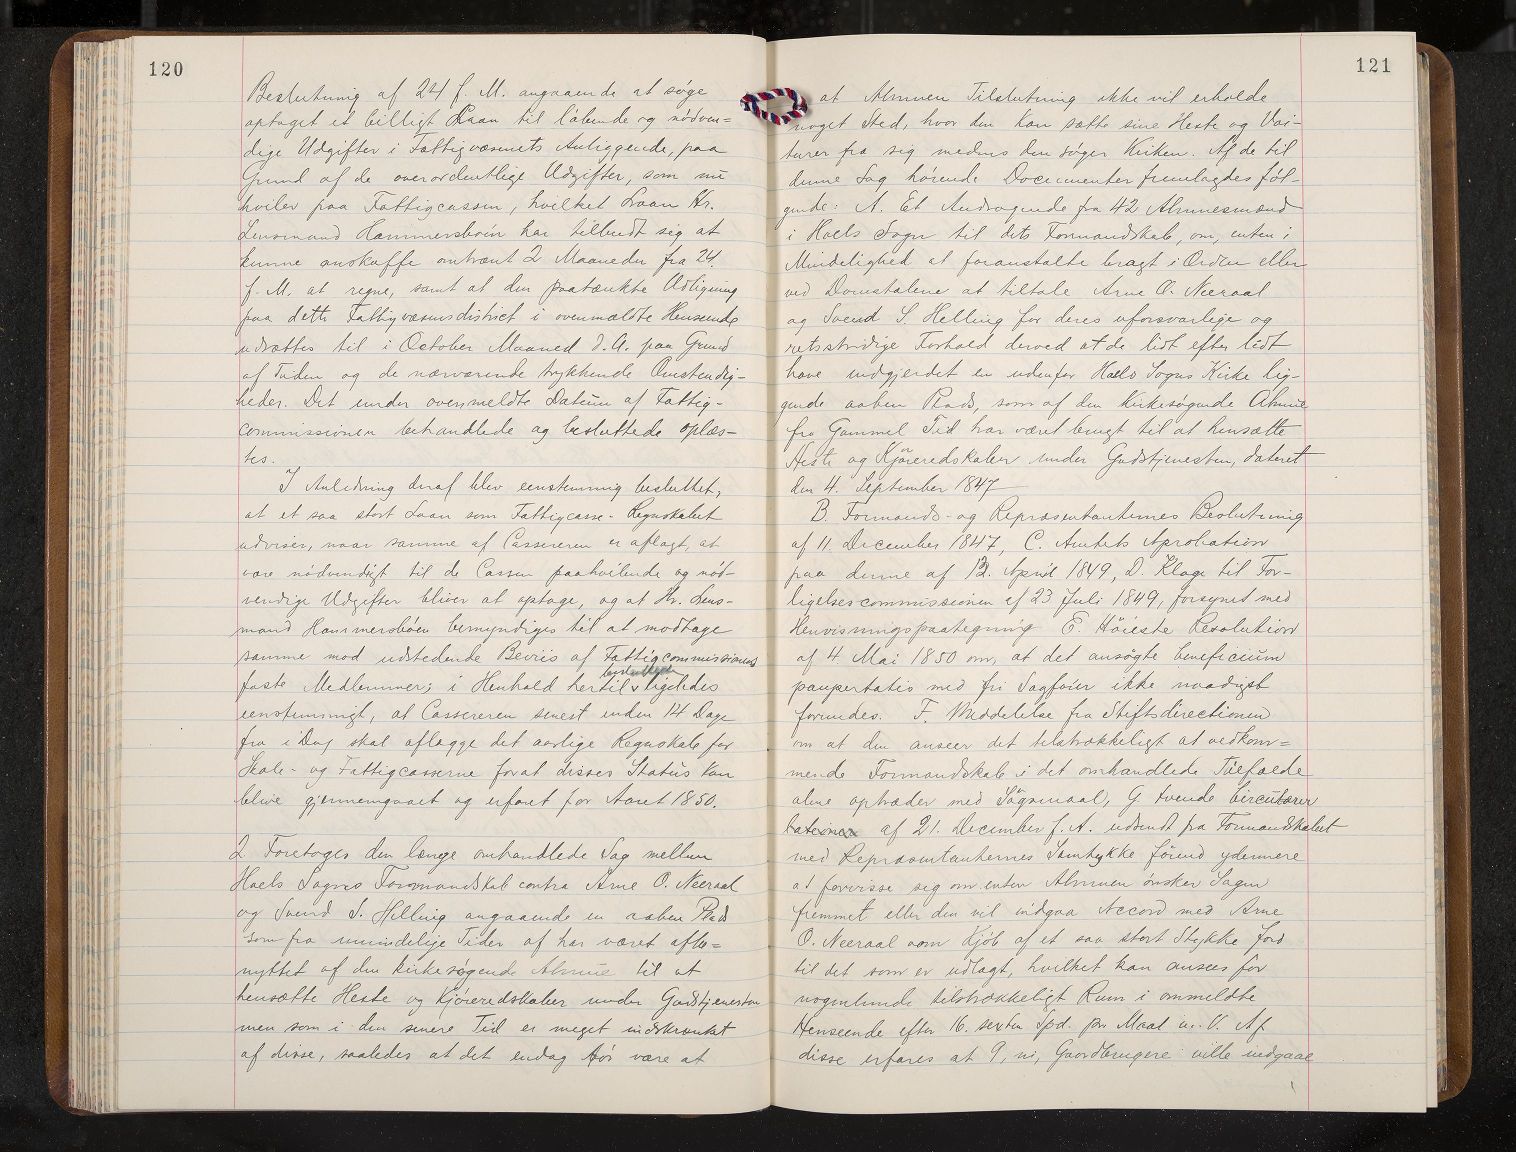 120
Beslutning af 24 f. M. angaaende at søge
optaget et billigt Laan til løbende og nødven=
dige Udgifter i Fattigvæsenets Anliggende, paa
Grund af de overordentlige Udgifter, som nu
hviler paa Fattigcassen, hvilket Laan Hr.
Lensmand Hammersbøen har tilbudt sig at
kunne anskaffe omtrent 2 Maaneder fra 24.
f. M. at regne, samt at den paatænkte Udligning
paa dette Fattigvæsensdistrict i ovenmældte Henseende
udsættes til i October Maaned d. A. paa Grund
af Tiden og de nærværende trykkende Omstændig-
heder. Det under ovenmeldte Datum af Fattig-
commissionen behandlede og besluttede oplæs-
tes.
I Anledning deraf blev eenstemmig besluttet,
at et saa stort Laan som Fattigcasse-Regnskabet
udviser, naar samme af Cassereren er aflagt, at
være nødvendigt til de Cassen paahvilende og nød-
vendige Udgifter bliver at optage, og at Hr. Lens-
mand Hammersbøen bemyndiges til at modtage
samme mod udstedende Beviis af Fattigcommissionens
faste Medlemmer; i Henhold hertil ligeledes
eenstemmigt, at Cassereren senest inden 14 Dage
fra i Dag skal aflægge det aarlige Regnskab for
Skole- og Fattigcasserne forat disses Status kan
blive gjennemgaaet og erfaret for Aaret 1850.
2 Foretoges den længe omhandlede Sag mellem
Hoels Sogns Formandskab contra Arne O. Neeraal
og Svend S. Helling angaaende en aaben Plads
som fra umindelige Tider af har været afbe=
nyttet af den kirkesøgende Almue til at
hensætte Heste og Kjøreredskaber under Gudstjenesten
men som i den senere Tid er meget indskrænket
af disse, saaledes at det endog tør være at
121
at Almuen Tilslutning ikke vil erholde
noget Sted, hvor den kan sætte sine Heste og Vai-
turer fra sig medens den søger Kirken. Af de til
denne Sag hørende Documenter fremlagdes føl-
gende: A. Et Andragende fra 42 Almuesmænd
i Hoels Sogn til dets Formandskab, om, enten i
Mindelighed at foranstalte bragt i Orden eller
ved Domstolene at tiltale Arne O. Neeraal
og Svend S. Helling for deres uforsvarlige og
retsstridige Forhold derved at de lidt efter lidt
have indgjerdet en udenfor Hoels Sogns Kirke lig-
gende aaben Plads, som af den kirkesøgende Almue
fra Gammel Tid har været brugt til at hensætte
Heste og Kjøreredskaber under Gudstjenesten, dateret
den 4. September 1847
B. Formands- og Repræsentanternes Beslutning
af 11. December 1847, C. Amtets Aprobation
paa denne af 13. April 1849, D. Klage til For-
ligelsescommissionen af 23 Juli 1849, forsynet med
Henvisningspaategning E. Høieste Resolution
af 4. Mai 1850 om, at det ansøgte beneficium
paupertatis med fri Sagfører ikke naadigst
forundes. F. Meddelelse fra Stiftsdirectionen
om at den anseer det tilstrækkeligt at vedkom=
mende Formandskab i det omhandlede Tilfælde
alene optræder med Søgsmaal, G. tvende Circulærer
af 21. December f. A. udsendt fra Formandskabet
med Repræsentanternes Samtykke førend ydermere
at forvisse sig om enten Almuen ønsker Sagen
fremmet eller den vil indgaa Accord med Arne
O. Neeraal om Kjøb af et saa stort Stykke Jord
til det som er udlagt, hvilket kan ansees for
nogenlunde tilstrækkeligt Rum i ommeldte
Henseende efter 16. sexten Spd. pr. Maal u. V. Af
disse erfares at 9, ni, Gaardbrugere ville indgaae